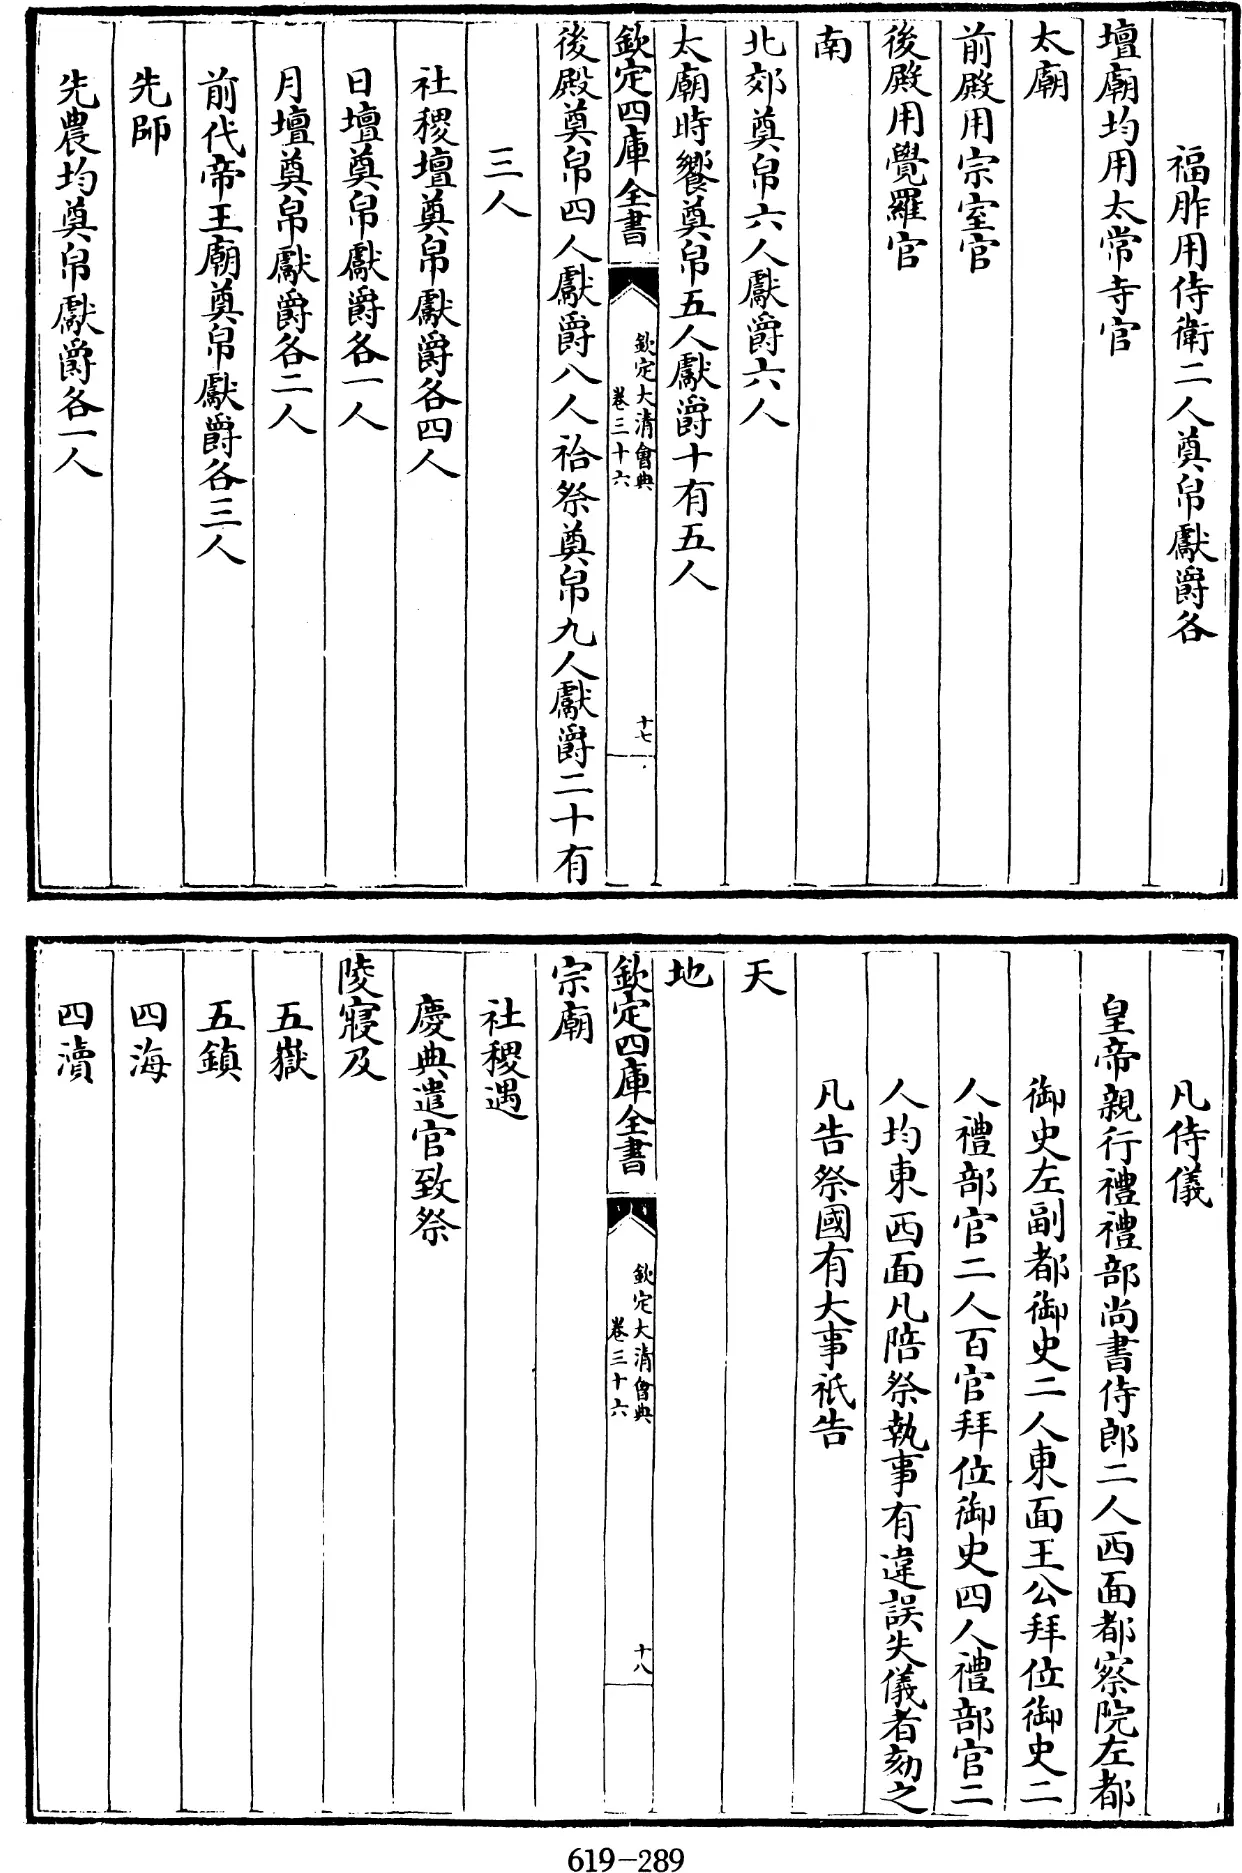 福胙用侍衛二人奠帛獻爵各
壇廟均用太常寺官
太廟
前殿用宗室官
後殿用覺羅官
南
北郊奠帛六人獻爵六人
太廟時饗奠帛五人獻爵十有五人
欽定四庫全書
欽定大清會典
卷三十六
十七
後殿奠帛四人獻爵八人祫祭奠帛九人獻爵二十有
三人
社稷壇奠帛獻爵各四人
日壇奠帛獻爵各一人
月壇奠帛獻爵各二人
前代帝王廟奠帛獻爵各三人
先師
先農均奠帛獻爵各一人
凡侍儀
皇帝親行禮禮部尚書侍郎二人西面都察院左都
御史左副都御史二人東面王公拜位御史二
人禮部官二人百官拜位御史四人禮部官二
人均東西面凡陪祭執事有違誤失儀者劾之
凡告祭國有大事祇告
天
地
欽定四庫全書
欽定大清會典
卷三十六
十八
宗廟
社稷遇
慶典遣官致祭
陵寢及
五嶽
五鎮
四海
四瀆
619-289